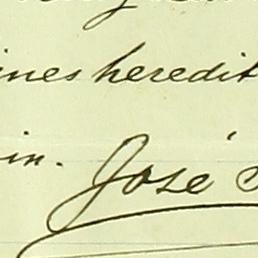 ines heredit
in.
José